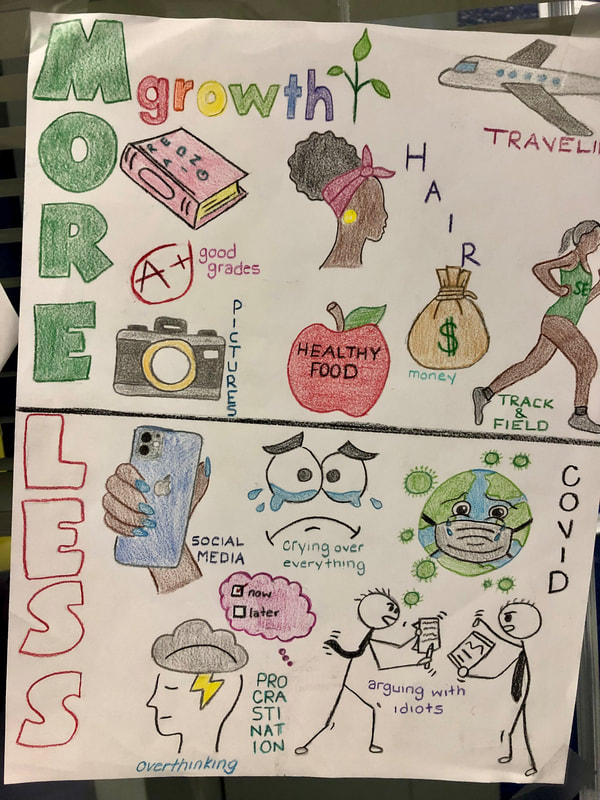 MORE
growth
TRAVELI
READING
HAIR
A+
good
grades
SE
PICTURES
HEALTHY
FOOD
$
money
TRACK
&
FIELD
LESS
SOCIAL
MEDIA
crying over
everything
COVID
now
later
PRO
CRA
STI
NAT
ION
overthinking
arguing with
idiots